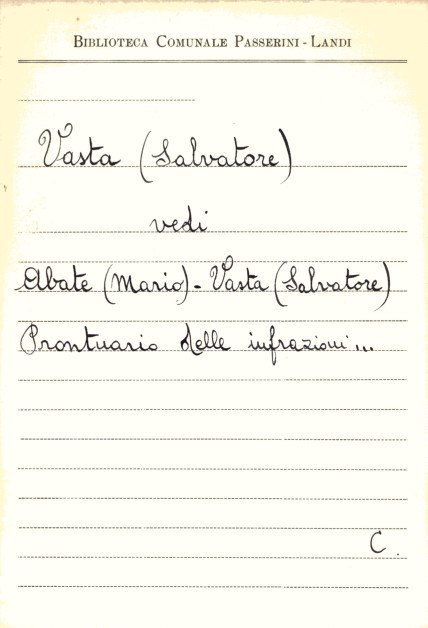 BIBLIOTECA COMUNALE PASSERINI - LANDI
Vasta (Salvatore)
vedi
Abate (Mario) - Vasta (Salvatore)
Prontuario delle infrazioni...
C.